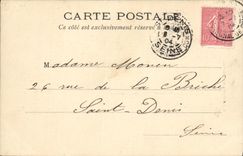 CARTE POSTALE
Ce côté est exclusivement réservé
ST DENIS
SEINE
Madame Moneu
26 rue de la Briche
Saint-Denis
Seine